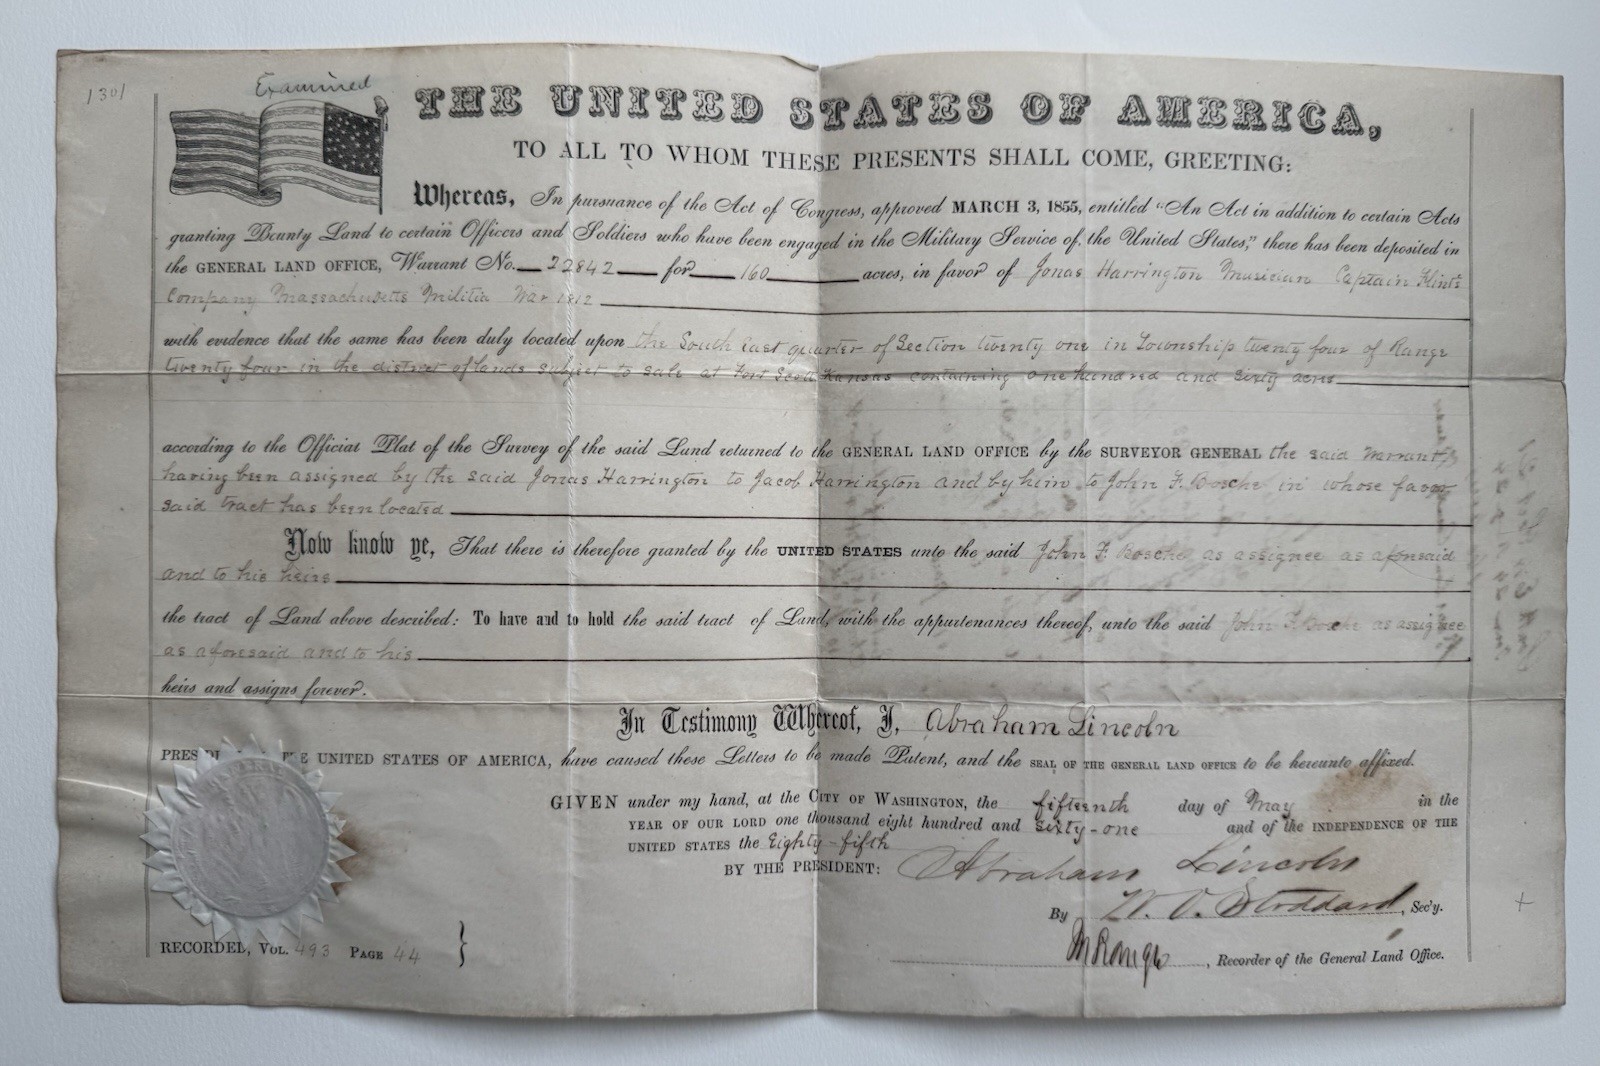 1301
Examined
THE UNITED STATES OF AMERICA,
TO ALL TO WHOM THESE PRESENTS SHALL COME, GREETING:
Whereas, In pursuance of the Act of Congress, approved MARCH 3, 1855, entitled "An Act in addition to certain Acts
granting Bounty Land to certain Officers and Soldiers who have been engaged in the Military Service of the United States," there has been deposited in
the GENERAL LAND OFFICE, Warrant No. 22842 for 160 acres, in favor of Jonas Harrington Musician Captain Flint's
Company Massachusetts Militia War 1812
with evidence that the same has been duly located upon the South East quarter of Section twenty one in Township twenty four of Range
twenty four in the district of lands subject to sale at Fort Scott Kansas containing one hundred and sixty acres
according to the Official Plat of the Survey of the said Land returned to the GENERAL LAND OFFICE by the SURVEYOR GENERAL the said Warrant
having been assigned by the said Jonas Harrington to Jacob Harrington and by him to John F. Bosche in whose favor
said tract has been located
Now know ye, That there is therefore granted by the UNITED STATES unto the said John F. Bosche as assignee as aforesaid
and to his heirs
the tract of Land above described: To have and to hold the said tract of Land, with the appurtenances thereof, unto the said John F. Bosche as assignee
as aforesaid and to his
heirs and assigns forever.
In Testimony Whereof, I, Abraham Lincoln
PRESIDENT OF THE UNITED STATES OF AMERICA, have caused these Letters to be made Patent, and the SEAL OF THE GENERAL LAND OFFICE to be hereunto affixed.
GIVEN under my hand, at the CITY OF WASHINGTON, the fifteenth day of May in the
YEAR OF OUR LORD one thousand eight hundred and sixty-one and of the INDEPENDENCE OF THE
UNITED STATES the Eighty-fifth
BY THE PRESIDENT: Abraham Lincoln
By W. O. Stoddard, Sec'y.
RECORDED, VOL. 493 PAGE 44
, Recorder of the General Land Office.